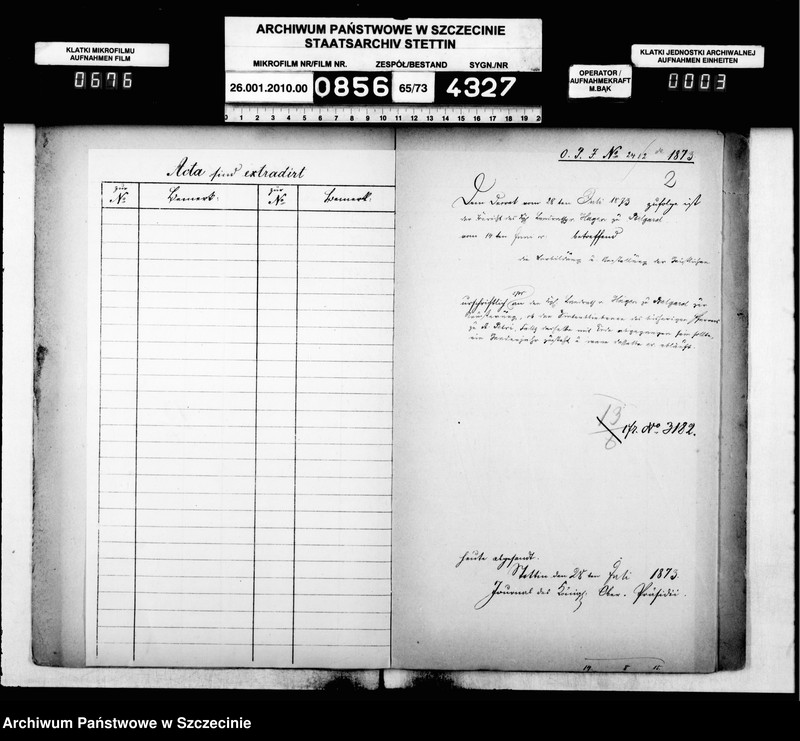 ARCHIWUM PAŃSTWOWE W SZCZECINIE
STAATSARCHIV STETTIN
KLATKI MIKROFILMU
AUFNAHMEN FILM
0676
MIKROFILM NR/FILM NR.
ZESPÓŁ/BESTAND
SYGN./NR
26.001.2010.00
0856
65/73
4327
OPERATOR /
AUFNAHMEKRAFT
M.BĄK
KLATKI JEDNOSTKI ARCHIWALNEJ
AUFNAHMEN EINHEITEN
0003
0 1 2 3 4 5 6 7 8 9 10 11 12 13 14 15 16 17 18 19 20
Acta sind extradirt
zur No
Bemerk.
zur No
Bemerk.
O. P. J. No 2412 de 1873
2
Dem Decret vom 28ten Juli 1873 zufolge ist
der Bericht des Kgl. Landraths Hagen zu Belgard
vom 14ten betreffend
die u der
urschriftlich an den Kgl. Landrath Hagen zu Belgard zur
ob der des bisherigen Pfarrers
zu falls derselbe mit Tode abgegangen sein sollte,
ein u wann dasselbe abläuft.
13
6
cfr. No 3182.
heute abgesandt.
Stettin den 28ten Juli 1873
Journal des Königl. Ober-Präsidii.
19 8 15
Archiwum Państwowe w Szczecinie